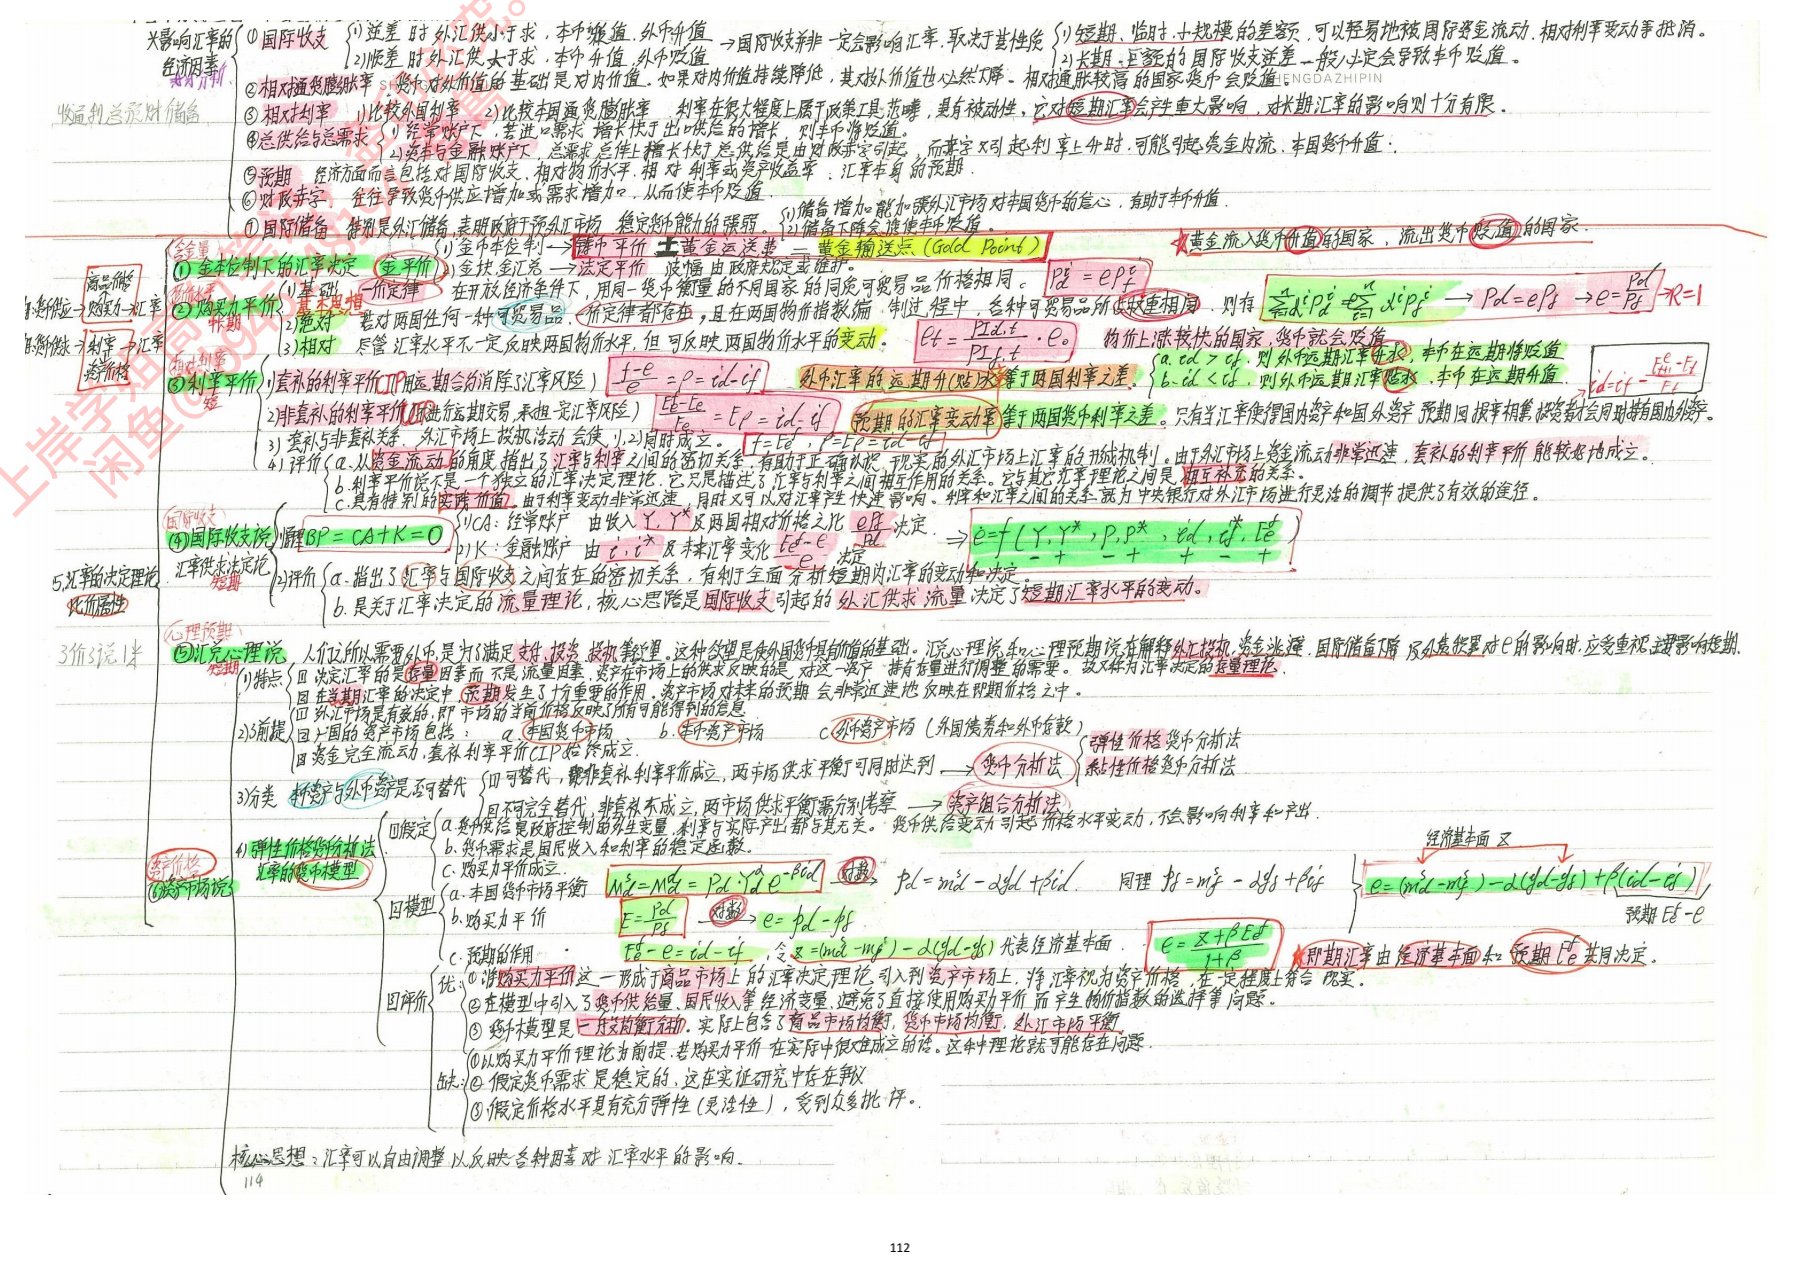 4.影响汇率的经济因素
收通利总预财储备
①国际收支
1)逆差时外汇供小于求，本币贬值，外币升值
2)顺差时外汇供大于求，本币升值，外币贬值
→国际收支并非一定会影响汇率，取决于其性质
1)短期、临时、小规模的差额，可以轻易地被国际资金流动、相对利率变动等抵消。
2)长期、巨额的国际收支逆差一般必定会导致本币贬值。
②相对通货膨胀率：货币对外价值的基础是对内价值。如果对内价值持续降低，其对外价值也必然下降。相对通胀较高的国家货币会贬值。
SHENGDAZHIPIN
③相对利率 1)比较外国利率 2)比较本国通货膨胀率 利率在很大程度上属于政策工具范畴，具有被动性。它对短期汇率会产生重大影响，对长期汇率的影响则十分有限。
④总供给与总需求
1)经常账户下，若进口需求增长快于出口供给的增长，则本币将贬值。
2)资本与金融账户下，总需求总体上增长快于总供给是由财政赤字引起，而赤字又引起利率上升时，可能引起资金内流，本国货币升值。
⑤预期 经济方面而言包括对国际收支、相对物价水平、相对利率或资产收益率、汇率本身的预期.
⑥财政赤字，往往导致货币供应增加或需求增加，从而使本币贬值.
⑦国际储备，特别是外汇储备，表明政府干预外汇市场、稳定货币能力的强弱。
1)储备增加能加强外汇市场对本国货币的信心，有助于本币升值.
2)储备下降会诱使本币贬值。
5.汇率的决定理论
比价属性
3价3说1米
含金量
①金本位制下的汇率决定 金平价
1)金币本位制→铸币平价±黄金运送费=黄金输送点(Gold Point)
★黄金流入货币价值的国家，流出货币贬值的国家.
2)金块金汇兑→法定平价 波幅由政府规定或维护。
商品价格
→购买力→汇率
→利率→汇率
资产价格
②购买力平价
长期
1)基础 一价定律 在开放经济条件下，用同一货币衡量的不同国家的同质可贸易品价格相同。 Pd^i = ePf^i
基本思想
2)绝对 若对两国任何一种可贸易品、一价定律都存在，且在两国物价指数编制过程中，各种可贸易品所占权重相同，则存 Σα^iPd^i = eΣα^iPf^i → Pd=ePf → e=Pd/Pf → R=1
3)相对 尽管汇率水平不一定反映两国物价水平，但可反映两国物价水平的变动。 et = PId,t/PIf,t · e0 物价上涨较快的国家，货币就会贬值
相对利率
③利率平价
短
1)套补的利率平价CIP(用远期合约消除了汇率风险) (f-e)/e = ρ = id-if 外币汇率的远期升(贴)水等于两国利率之差。
a. id > if，则外币远期汇率升水，本币在远期将贬值
b. id < if，则外币远期汇率贴水，本币在远期升值
2)非套补的利率平价(不进行远期交易，承担一定汇率风险) = Eρ = id-if 预期的汇率变动率等于两国货币利率之差。只有当汇率使得国内资产和国外资产预期回报率相等，投资者才会同时持有国内外资产。
3)套补与非套补关系，外汇市场上投机活动会使1),2)同时成立。
4)评价
a.从资金流动的角度指出了汇率与利率之间的密切关系，有助于正确认识现实的外汇市场上汇率的形成机制。由于外汇市场上资金流动非常迅速，套补的利率平价能较好地成立。
b.利率平价说不是一个独立的汇率决定理论，它只是描述了汇率与利率之间相互作用的关系。它与其它汇率理论之间是相互补充的关系。
c.具有特别的实践价值。由于利率变动非常迅速，同时又可以对汇率产生快速影响。利率和汇率之间的关系就为中央银行对外汇市场进行灵活的调节提供了有效的途径。
国际收支
④国际收支说
汇率供求决定论
短期
1)原理 BP=CA+K=0
1)CA：经常账户 由收入Y, Y*及两国相对价格之比 ePf/Pd 决定.
2)K：金融账户 由i, i*及未来汇率变化 决定
⇒ e=f(Y, Y*, P, P*, id, if*, Eef)
− + − + − + +
2)评价
a.指出了汇率与国际收支之间存在的密切关系，有利于全面分析短期内汇率的变动和决定。
b.是关于汇率决定的流量理论，核心思路是国际收支引起的外汇供求流量决定了短期汇率水平的变动。
心理预期
⑤汇兑心理说
短期
人们之所以需要外币，是为了满足支付、投资、投机等欲望。这种欲望是使外国货币具有价值的基础。汇兑心理说和心理预期说在解释外汇投机、资金逃避、国际储备下降及外债积累对e的影响时，应受重视，主要影响短期.
资产价格
⑥资产市场说
1)特点
决定汇率的是存量因素而不是流量因素，资产在市场上的供求反映的是对这一资产持有存量进行调整的需要。故又称为汇率决定的存量理论.
在当期汇率的决定中，预期发生了十分重要的作用。资产市场对未来的预期会非常迅速地反映在即期价格之中.
2)3前提
外汇市场是有效的，即市场的当前价格反映了所有可能得到的信息
一国的资产市场包括： a.本国货币市场 b.本币资产市场 c.外币资产市场(外国债券和外币存款)
资金完全流动，套补利率平价CIP始终成立.
3)分类 本币资产与外币资产是否可替代
可替代，非套补利率平价成立，两市场供求平衡可同时达到 → 货币分析法
弹性价格货币分析法
黏性价格货币分析法
不可完全替代，非套补不成立，两市场供求平衡需分别考察 → 资产组合分析法
4)弹性价格货币分析法
汇率的货币模型
假定
a.货币供给是政府控制的外生变量，利率与实际产出都与其无关。货币供给变动引起价格水平变动，不会影响利率和产出.
b.货币需求是国民收入和利率的稳定函数.
c.购买力平价成立.
模型
a.本国货币市场平衡 Md^s=Md^d=Pd·Yd^αe^-βid 对数→ pd=md^s-αyd+βid. 同理 pf=mf^s-αyf+βif
b.购买力平价 E=Pd/Pf 对数→ e=pd-pf
经济基本面 z
e=(md^s-mf^s)-α(yd-yf)+β(id-if)
预期 Eef-e
c.预期的作用 Eef-e=id-if，令z=(md^s-mf^s)-α(yd-yf)代表经济基本面. e=(z+βEef)/(1+β) ★即期汇率由经济基本面和预期Eef共同决定。
评价
优：①将购买力平价这一形成于商品市场上的汇率决定理论，引入到资产市场上，将汇率视为资产价格，在一定程度上符合现实。
②在模型中引入了货币供给量、国民收入等经济变量，避免了直接使用购买力平价而产生物价指数的选择等问题.
③货币模型是一般均衡分析。实际上包含了商品市场均衡，货币市场均衡，外汇市场平衡
缺：①以购买力平价理论为前提，若购买力平价在实际中很难成立的话。这种理论就可能存在问题.
②假定货币需求是稳定的，这在实证研究中存在争议
③假定价格水平具有充分弹性(灵活性)，受到众多批评。
核心思想：汇率可以自由调整以反映各种因素对汇率水平的影响.
114
112